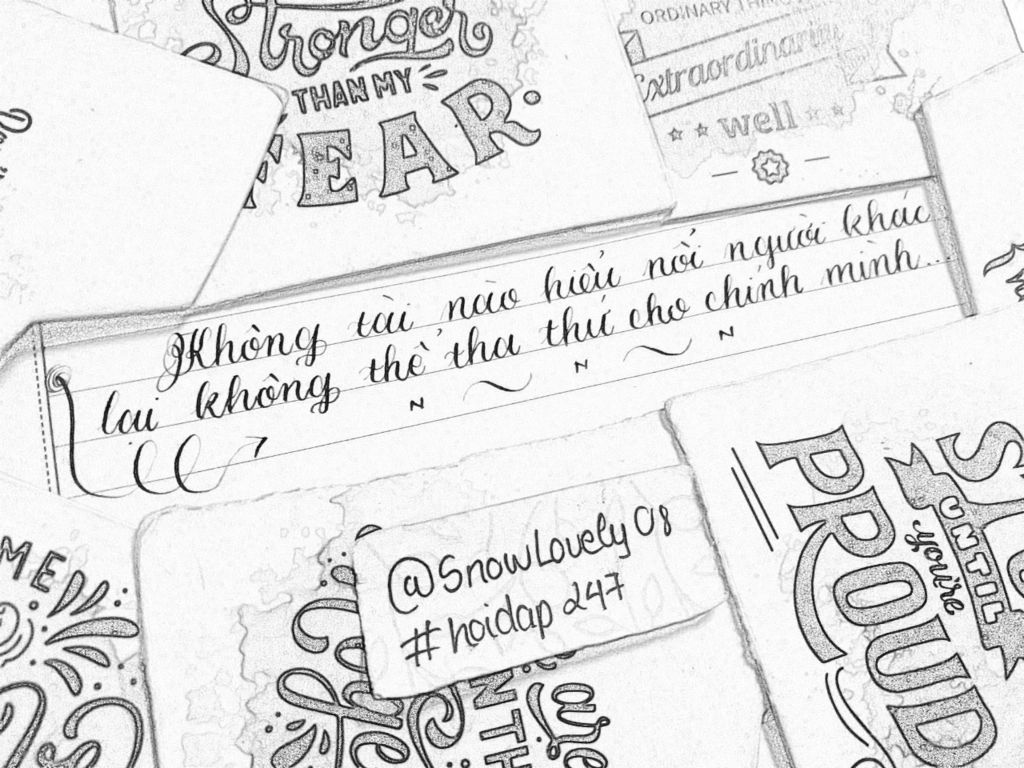 Stronger
THAN MY
FEAR.
ORDINARY
Extraordinarily
well
Không tài nào hiểu nổi người khác
lại không thể tha thứ cho chính mình...
N N N
@SnowLovely08
#hoidap247
UNTIL
you're
PROUD
ME
are